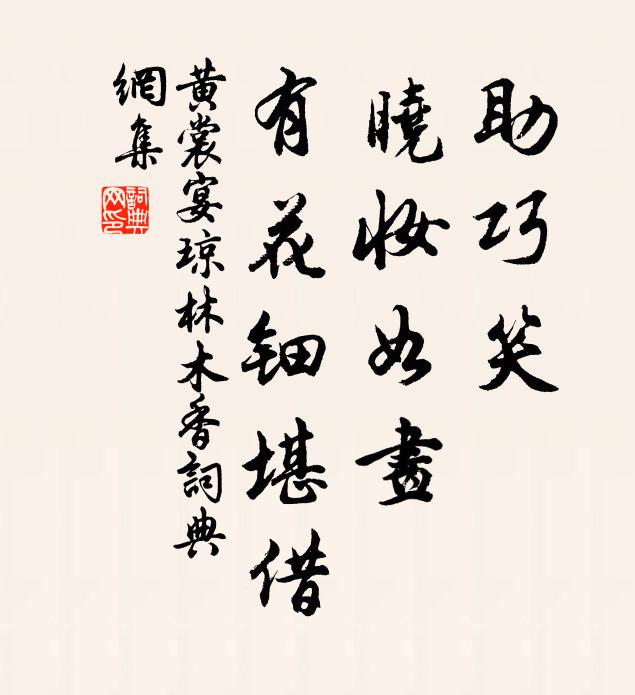 助巧笑
曉妝如畫
有花鈿堪借
黄裳宴琼林木香詞典
網集
詞典
网印